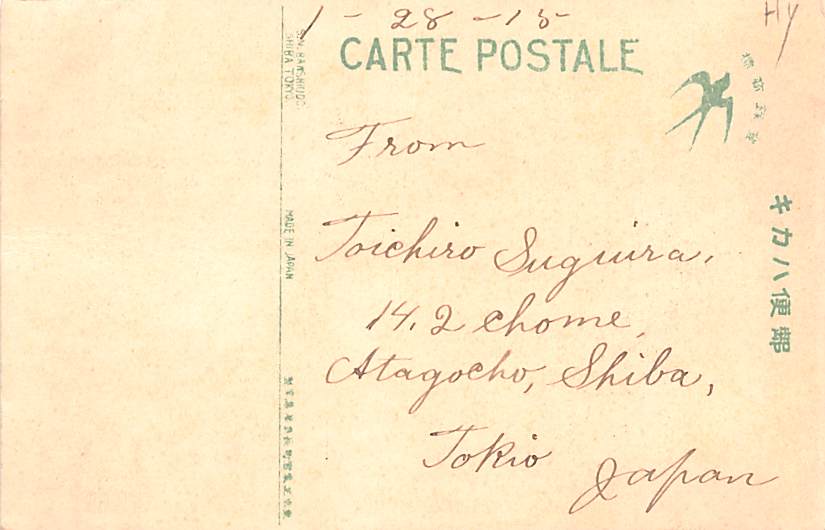 1 - 28 - 15
Hy
CARTE POSTALE
SHIBA TOKYO.
MADE IN JAPAN
キカハ便郵
From
Toichiro Sugiura.
14. 2 chome,
Atagocho, Shiba,
Tokio Japan